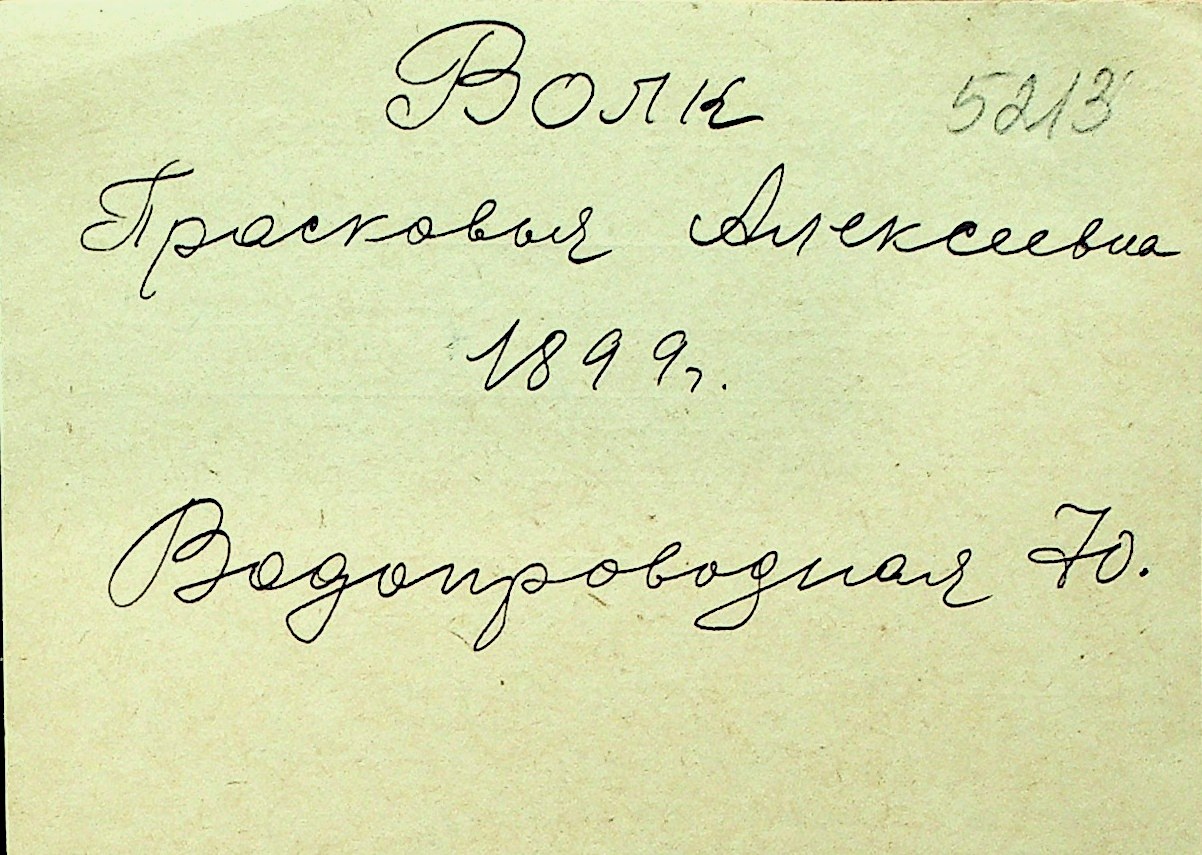 Волк 5213
Прасковья Алексеевна
1899г.
Водопроводная 70.